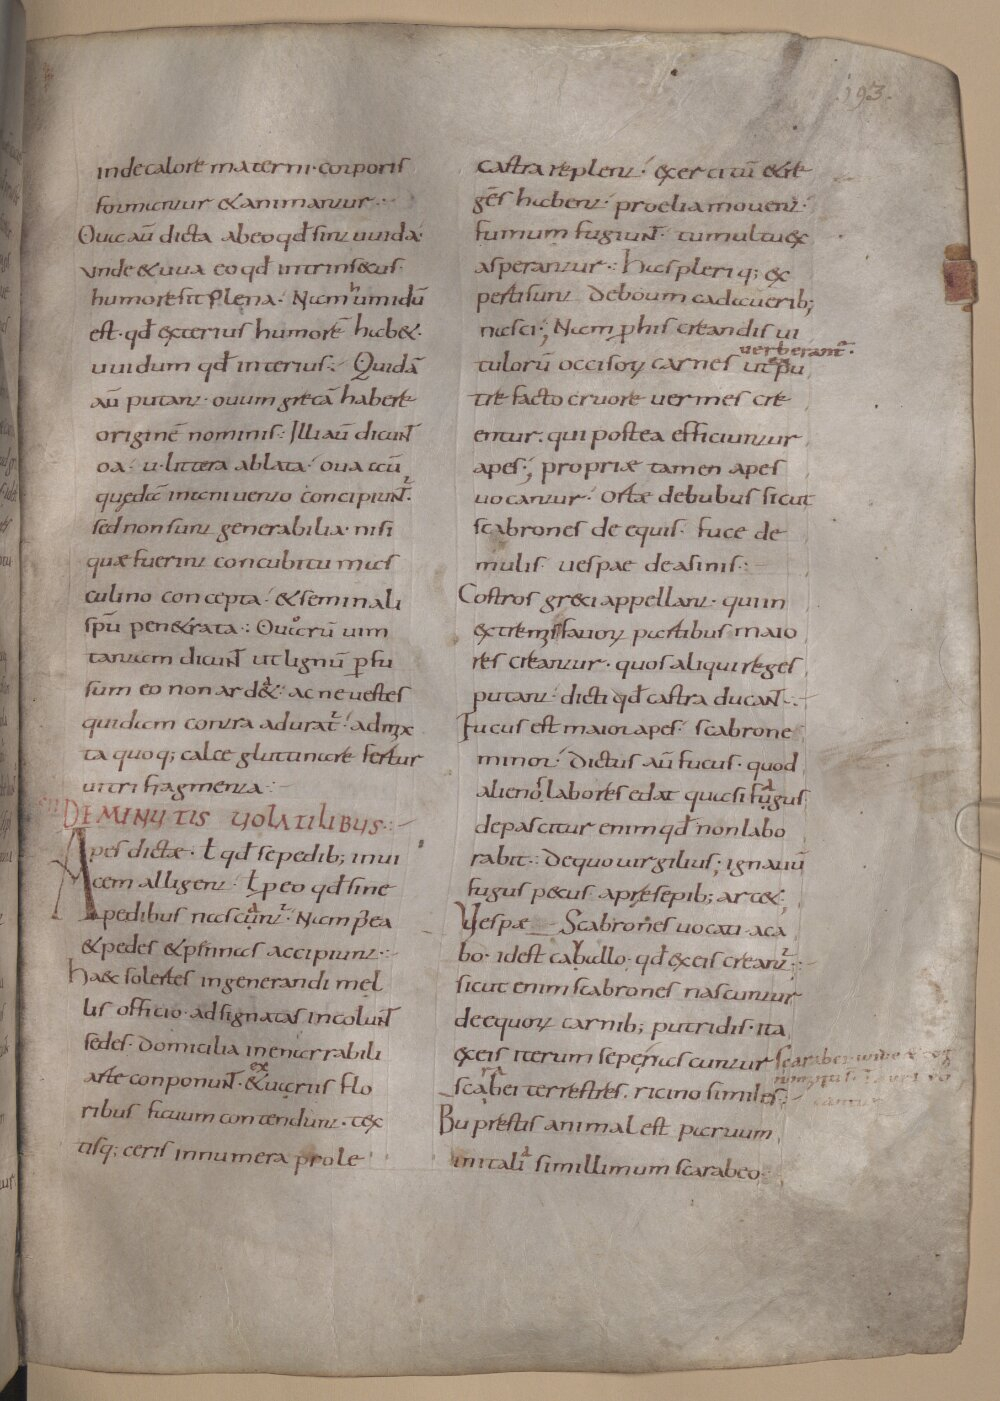 193.
inde calore materni · corporis
formantur & animantur ·:·
Oua aū dicta ab eo qđ sint uuida·
unde & uua eo qđ intrinsecus·
humore sit plena·́ Nam umidū
est · qđ exterius humorē hab&·
uuidum qđ interius·: Quidā
aū putant · ouum grecā habere
originē nominis·: Illi aū dicunt̄
oa·́ u · littera ablata·́ oua
quędā inani uento concipiunt̄·
sed non sunt generabilia · nisi
quæ fuerint concubitu mas
culino concepta·́ & seminali
sp̄u penetrata·: Ouorū uim
tantam dicunt̄ ut lignū ꝑfu
sum eo non ard&·́ ac ne uestes
quidam contra adurat̄·́ admix
ta quoq; calce glutinare fertur
uitri fragmenta·:
DE MINUTIS UOLATILIBUS·:
Apes dictæ · ł qđ se pedib; inui
cem alligent·́ ł ꝑ eo qđ sine
pedibus nascunt̄· Nam
& pedes & pennas accipiunt·:
hae solertes in generandi mel
lis officio · adsignatas incolunt̄
sedes · domicilia inenarrabili
arte conponunt̄· ex
& uariis flo
ribus fauum contendunt · tex
tisq; ceris innumera prole
castra replent·́ exercitū & re
gēs habent · proelia mouent·
fumum fugiunt̄· tumultu ex
asperantur·: has pleriq; ex
perti sunt de boum cadauerib;
nasci·; Nam ꝓ his creandis ui
verberant̄·
tulorū occisoꝝ carnes ut ex pu
tre facto cruore uermes cre
entur · qui postea efficiuntur
apes·; propriæ tamen apes
uocantur·́ ortæ de bubus sicut
scabrones de equis· fuce de
mulis uespae de asinis·:
Costros greci appellant · qui in
extremis fauoꝝ partibus maio
res creantur · quos aliqui reges
putant·́ dicti qđ castra ducant̄·:
Fucus est maior apes·́ scabrone
minor·́ dictus aū fucus · quod
alienos labores edat quasi fagus
depascitur enim qđ non labo
rabit·: de quo uirgilius·; ignauū
fugus pecus a presepib; arcet·;
Vespæ Scabrones uocati · a ca
bo · id est caballo· qđ ex eis creant̄·:
sicut enim scabrones nascuntur
de equoꝝ carnib; putridis · ita
ex eis iterum sepe nascuntur scarabei · unde &
ra
scabei terrestres · ricino similes·:
Buprestis animal est paruum
in italia simillimum scarabeo·